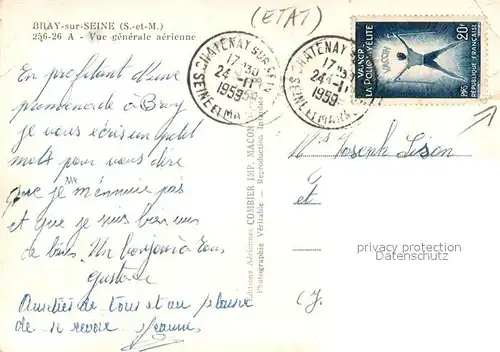 BRAY-sur-SEINE (S.-et-M.)
256-26 A - Vue générale aérienne
(ETAT)
CHATENAY SUR SEINE
17H30
24-11
1959
SEINE ET MARNE
CHATENAY SUR SEINE
17H30
24-11
1959
SEINE ET MARNE
VAINCRE
LA POLIOMYÉLITE
VACCIN
20F
RÉPUBLIQUE FRANÇAISE
En profitant d'une
promenade à Bray
je vous écris un petit
mot pour vous dire
que je m'ennuie pas
et que je suis bien vu
de tous. Un bonjour à tous
Gustave
Amitiés de tous et au plaisir
de se revoir Jeanne
Editions Aériennes COMBIER IMP. MACON
Photographie Véritable - Reproduction Interdite
Joseph
et
privacy protection
watermark